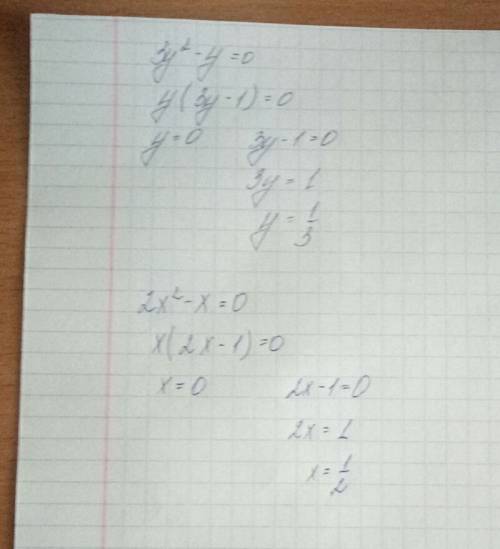 3y² - y = 0
y(3y - 1) = 0
y = 0 3y - 1 = 0
3y = 1
y = 1/3
2x² - x = 0
x(2x - 1) = 0
x = 0 2x - 1 = 0
2x = 1
x = 1/2